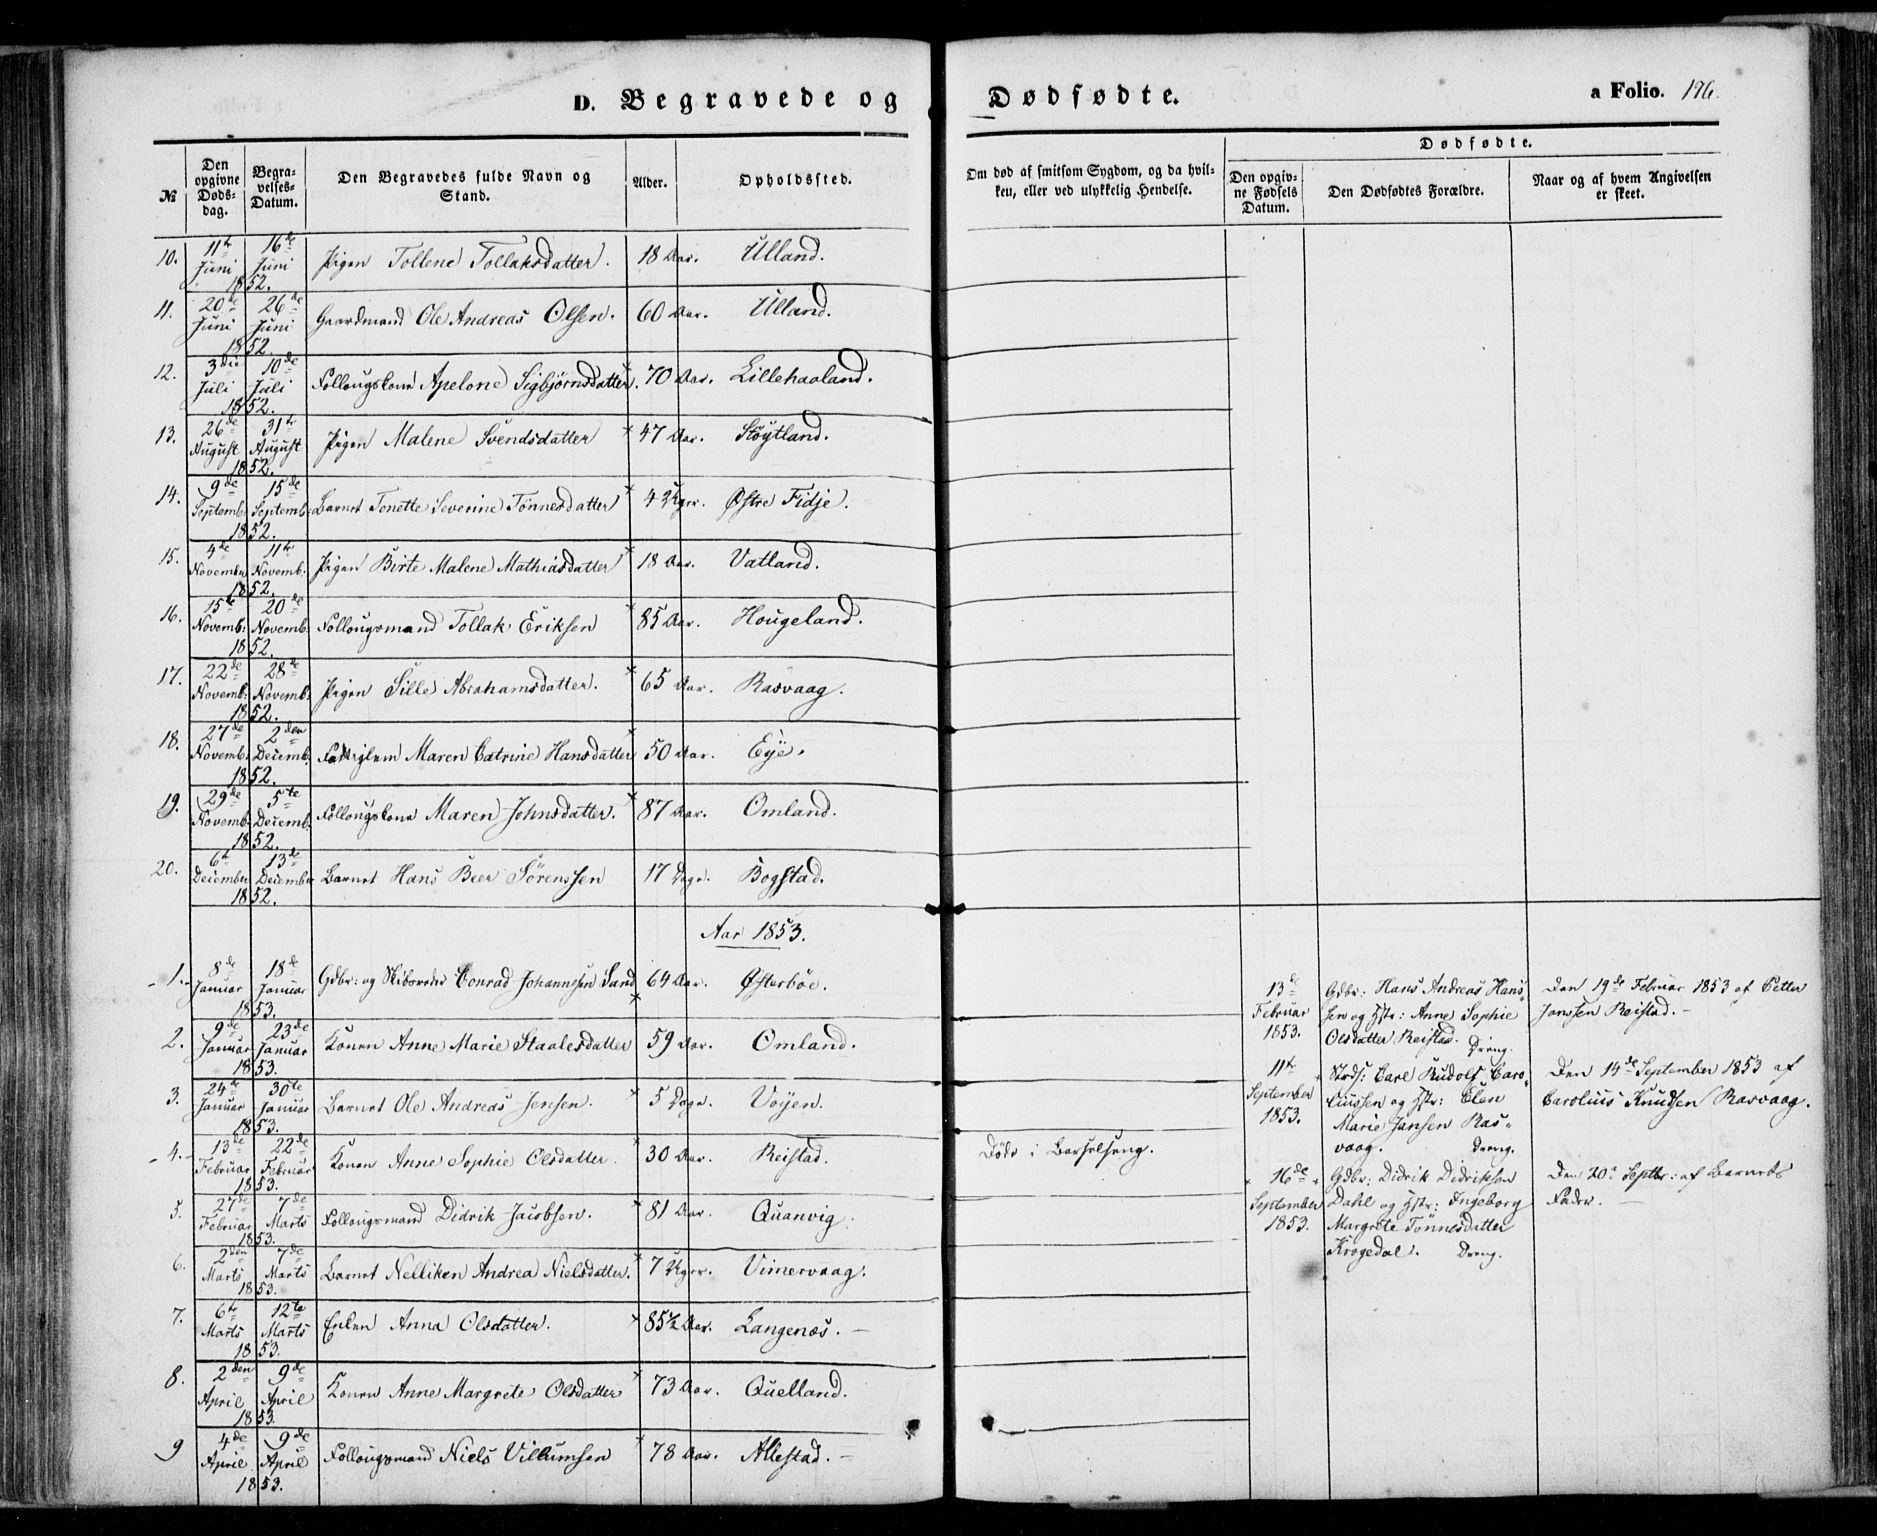 D. Begravede og Dødfødte.
a Folio. 196.
№
Den opgivne Døds-dag.
Begra-velses-Datum.
Den Begravedes fulde Navn og Stand.
Alder.
Opholdssted.
Om død af smitsom Sygdom, og da hvil-ken, eller ved ulykkelig Hendelse.
Dødfødte.
Den opgiv-ne Fødsels Datum.
Den Dødfødtes Forældre.
Naar og af hvem Angivelsen er skeet.
10. 11te Juni 16de Juni 1852. Pigen Tollene Tollaksdatter. 18 Aar. Ulland.
11. 20de Juni 26de Juni 1852. Gaardmand Ole Andreas Olsen. 60 Aar. Ulland.
12. 3die Juli 10de Juli 1852. Follougskone Apelone Sigbjørnsdatter. 70 Aar. Lillehaaland.
13. 26de August 31te August 1852. Pigen Malene Svendsdatter 47 Aar. Støytland.
14. 9de Septemb: 15de Septemb: 1852. Barnet Tonette Severine Tønnesdatter 4 Uger. Østre Fidje.
15. 4de November 11te Novemb: 1852. Pigen Birte Malene Mathiasdatter 18 Aar. Vatland.
16. 15de Novemb: 20de Novemb: 1852. Follougsmand Tollak Eriksen 85 Aar. Hougeland.
17. 22de Novemb: 28de Novemb: 1852. Pigen Sille Abrahamsdatter. 65 Aar. Rasvaag.
18. 27de Novemb: 2den Decemb. 1852. Maren Catrine Hansdatter 50 Aar. Eye.
19. 29de Novemb: 5te Decemb. 1852. Follougskone Maren Johnsdatter. 87 Aar. Omland.
20. 6te December 13de December 1852. Barnet Hans Beer Sørenssen 17 Dage. Bogstad.
Aar 1853.
1. 8de Januar 18de Januar 1853. Gdbr: og Skibsreder Conrad Johannesen Sand 64 Aar. Østerbøe.
2. 9de Januar 23de Januar 1853. Konen Anne Marie Staalesdatter 59 Aar. Omland.
3. 24de Januar 30te Januar 1853. Barnet Ole Andreas Jensen. 5 Dage. Voyen.
4. 13de Februar 22de Februar 1853. Konen Anne Sophie Olsdatter. 30 Aar. Reistad. Døde i Barselseng.
5. 27de Februar 7de Marts 1853. Follougsmand Didrik Jacobsen. 81 Aar. Quanvig.
6. 2den Marts 7de Marts 1853. Barnet Nelliken Andrea Nielsdatter. 7 Uger. Vimervaag.
7. 6te Marts 12te Marts 1853. Enken Anna Olsdatter. 85½ Aar. Langenæs. —
8. 2den April 9de April 1853. Konen Anne Margrete Olsdatter 73 Aar. Quelland.
9 4de April 9de April 1853. Follougsmand Niels Villumsen 78 Aar. Allestad. —
13de Februar 1853.
Gdbr: Hans Andreas Hans-
sen og Hstr: Anne Sophie
Olsdatter Reistad. Dreng.
Den 19de Februar 1853 af Petter
Janssen Reistad. —
11te September 1853.
Strds: Carl Rudolf Caro-
liussen og Hstr: Elen
Marie Jansen Ras-
vaag. Dreng.
Den 14de September 1853 af
Carolius Knudsen Rasvaag.
16de September 1853.
Gdbr: Didrik Didriksen
Dahl og Hstr: Ingeborg
Margrete Tønnesdatter
Krogedal. Dreng.
Den 20de Septbr: af Barnets
Fader. —